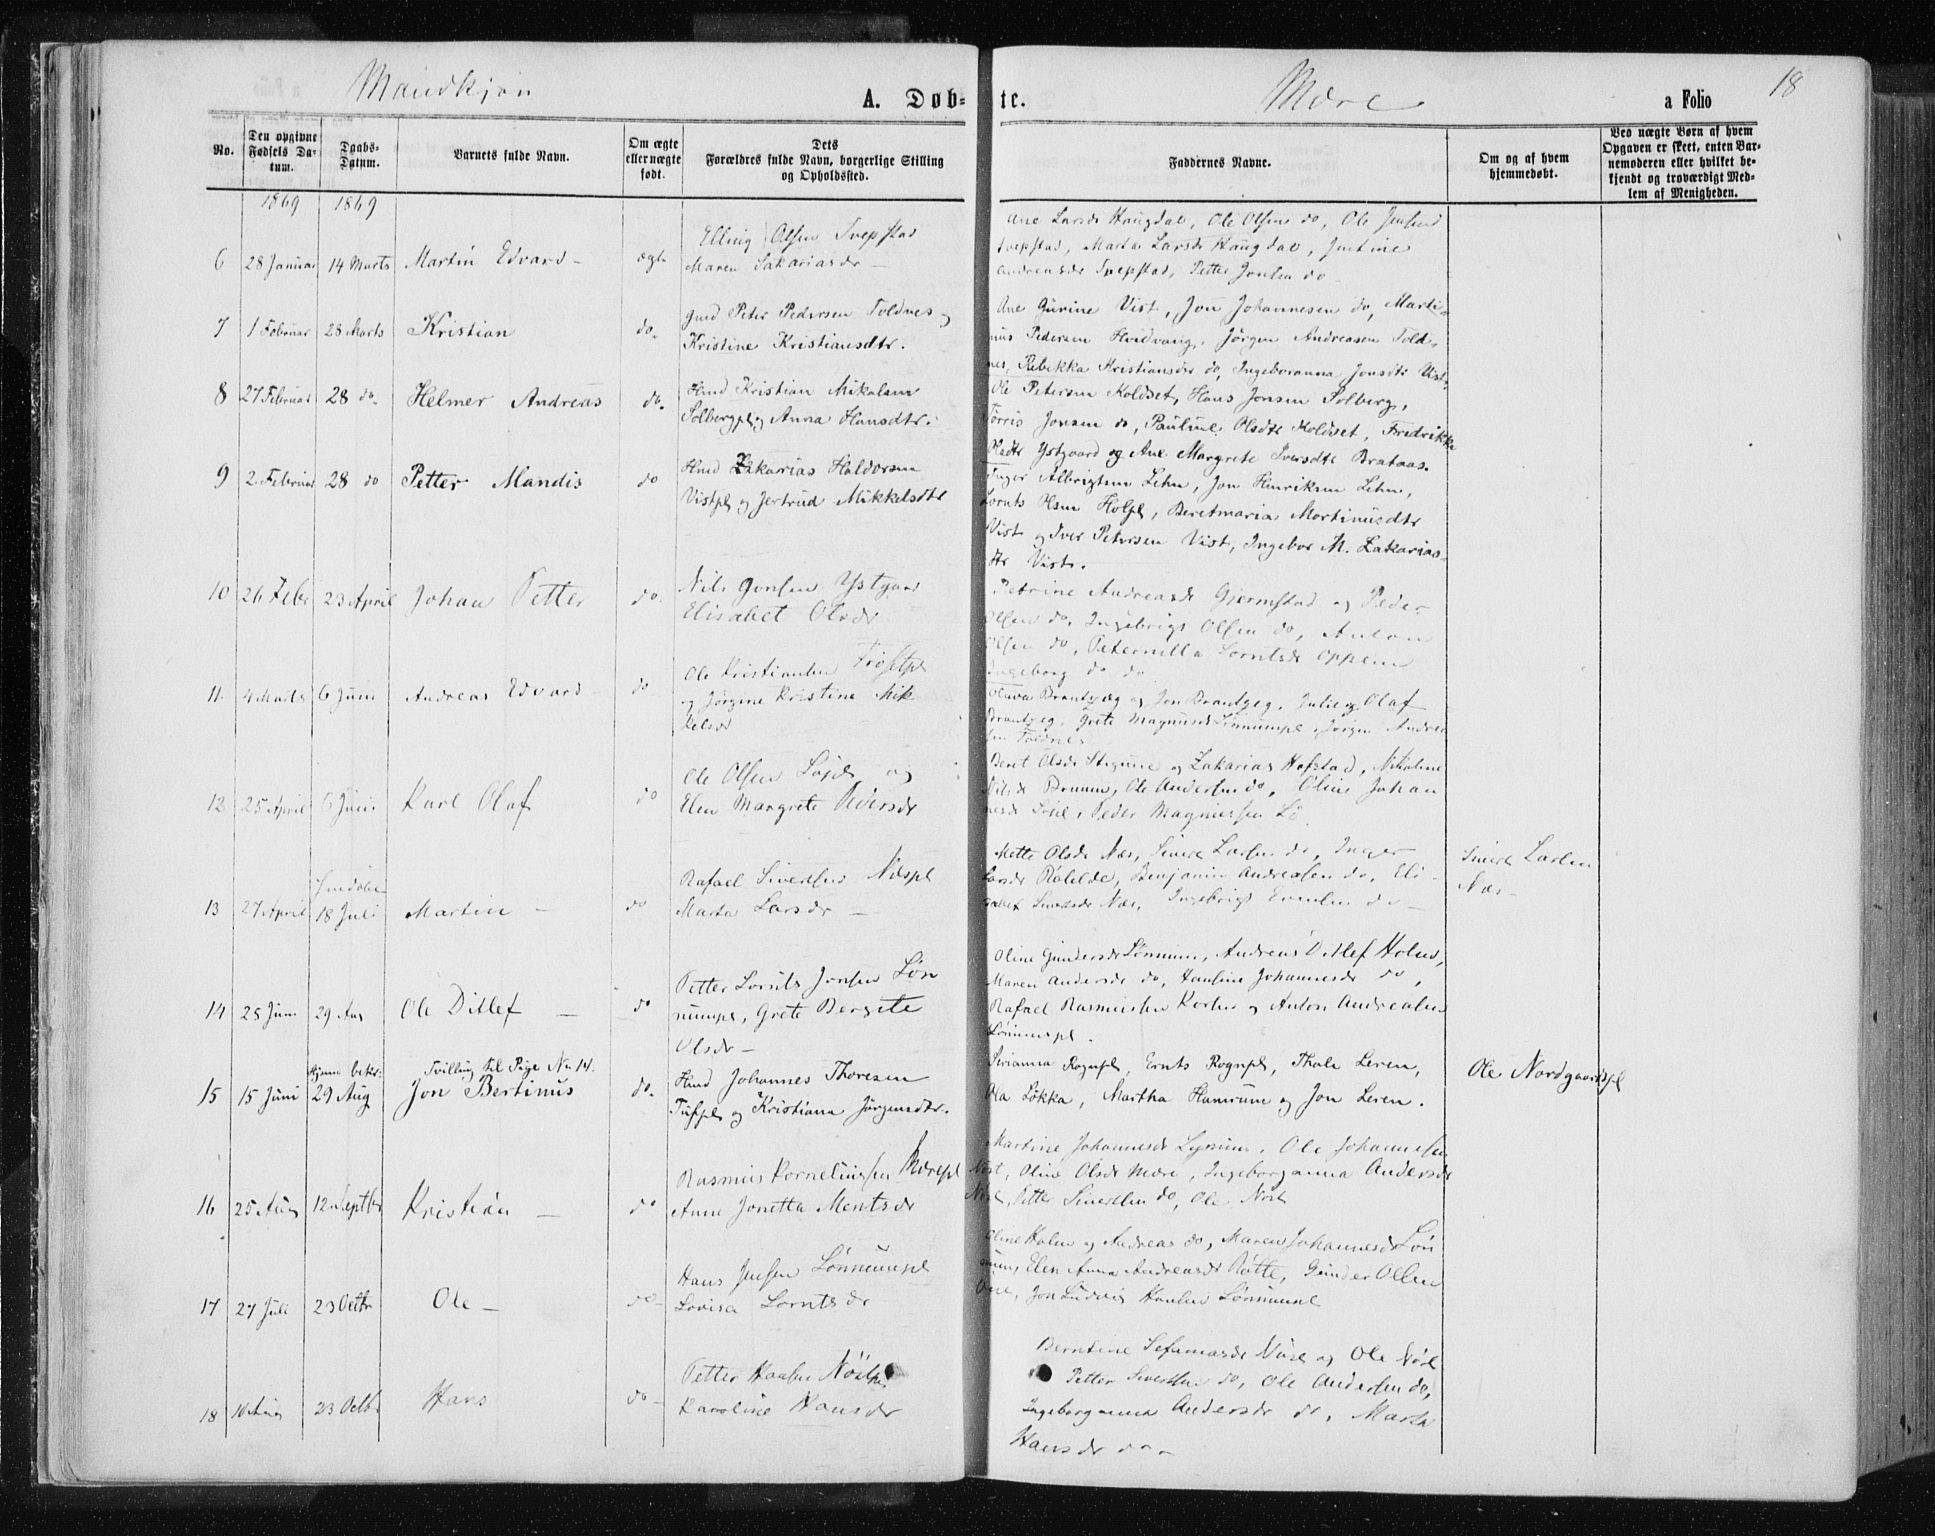 Mandkjøn
A. Døb-
te.
Mære
a Folio
18
No.
Den opgivne Fødsels Da-tum.
Daabs-Datum.
Barnets fulde Navn.
Om ægte eller uægte født.
Dets Forældres fulde Navn, borgerlige Stilling og Opholdssted.
Faddernes Navne.
Om og af hvem hjemmedøbt.
Ved uægte Børn af hvem Opgaven er skeet, enten Bar-nemoderen eller hvilket be-kjendt og troværdigt Med-lem af Menigheden.
1869 1869
Elling Olsen Tvepstad
6 28 Januar 14 Marts Martin Edvard – ægte Maren Sakariasdr –
Ane Larsdr Haugdal, Ole Olsen do, Ole Jensen
Tvepstad, Marta Larsdr Haugdal, Justine
Andreasdr Tvepstad, Petter Jonsen do
Gmd Peter Pedersen Toldnes og
7 1 Februar 28 Marts Kristian do. Kristine Kristiansdtr.
Ane Gurine Vist, Jon Johannesen do, Marti-
nus Pedersen Hvidvang, Jørgen Andreasen Told-
nes, Rebekka Kristiansdr do, Ingeboranna Jonsdtr Vist.
8 27 Februar 28 do. Helmer Andreas do. Hmd Kristian Mikalsen
Solbergpl. og Anna Hansdtr.
Ole Petersen Koldset, Hans Jonsen Solberg,
Tørris Jonsen do, Pauline Olsdtr Koldset, Fredrikke
Olsdtr Ystgaard og Ane Margrete Iversdtr Brataas.
9 2 Februar 28 do Petter Mandis do Hmd Zakarias Haldorsen
Vistpl og Jertrud Mikkelsdtr
Inger Albrigtsen Lehn, Jon Henriksen Lehn,
Lornts Hsen Holpl, Beretmaria Mortinusdtr
Vist og Iver Petersen Vist, Ingebor M. Zakarias-
dtr Vist.
10 26 Febr 23 April Johan Petter do. Nils Jonsen Ystgaar
Elisabet Olsdr
Petrine Andreasdr Gjermstad og Peder
Olsen do, Ingebrigt Olsen do, Anton
Olsen do, Peternilla Lorntsdr Oppem
Ingeborg do do
11. 4 Marts 6 Juni Andreas Edvard – do Ole Kristiansen Frøsetpl
og Jørgine Kristine Mik
kelsdr
Olava Brandtzæg og Jon Brandtzeg, Julie og Olaf
Brantzeg, Grete Magnusdr Lønnumpl, Jørgen Andrea
sen Toldnes
12 25 April 6 Juni Karl Olaf do Ole Olsen og
Elen Margrete Pedersdr
Beret Olsdr og Zakarias Hofstad, Nikoline
Nilsdr, Ole Andersen do, Oline Johan
nesdr, Peder Magnussen Lø
13 27 April 18 Juli Martin – do Rafael Sivertsen Næspl
Marta Larsdr –
Mette Olsdr Næs, Sivert Larsen do, Inger
Larsdr, Benjamin Andreasen do, Eli-
sabet Sivertsdr Næs, Ingebrigt Evensen do –
Sivert Larsen
Næs –
14 28 Juni 29 Aug Ole Ditlef – do Petter Lornts Jonsen Løn
numpl, Grete Bergite
Olsdr –
Oline Gundersdr Lønnum, Andreas Ditlef Holm,
Maren Andersdr do, Pauline Johannesdr do,
Rafael Rasmussen og Anton Andreasen
Lønnumpl.
Hjem bekr: Tvilling til Pige No 14.
15 15 Juni 29 Aug Jon Bertinus do. Hmd Johannes Thoresen
Tufpl og Kristiana Jørgensdtr.
Sirianna Rognpl, Ernts Rognpl, Thale Leren,
Ola Løkka, Martha Hamrum og Jon Leren.
Ole Nordgaardspl
16 25 Aug 12 Septbr Kristian – do Rasmus Korneliussen Mærepl
Anne Jonetta Mentsdr
Martine Johannesdr, Ole Johannesen
Nøst, Oline Olsdr Mære, Ingeborganna Andersdr
Nøst, Petter Sivertsen do, Ole Nøst
17 27 Juli 23 Octbr Ole – do – Hans Jensen Lønnumpl
Lovisa Lorntsdr
Oline Holm og Andreas do, Maren Johannesdr Løn
num, Elen Anna Andreasdr, Gunder Olsen
, Jon Ludvig Hansen Lønnumpl
18 10 Aug 23 Octbr Hans do – Petter Hansen Nøstpl
Karoline Hansdr
Berntine Nøst og Ole Nøst
Petter Sivertsen do, Ole Andersen do,
Ingeborganna Andersdr do, Marta
Hansdr do –